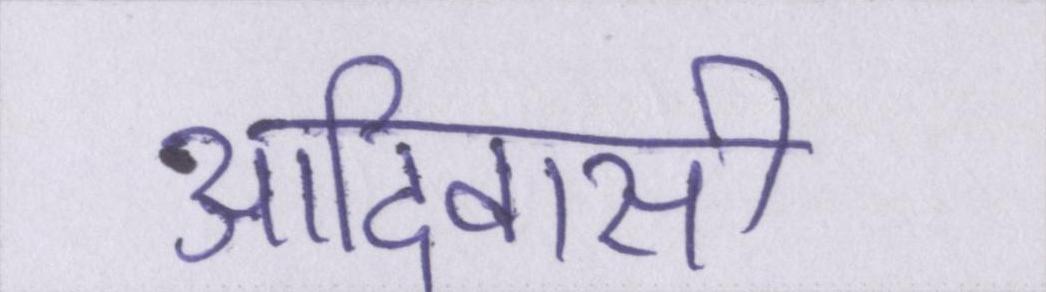 आदिवासी